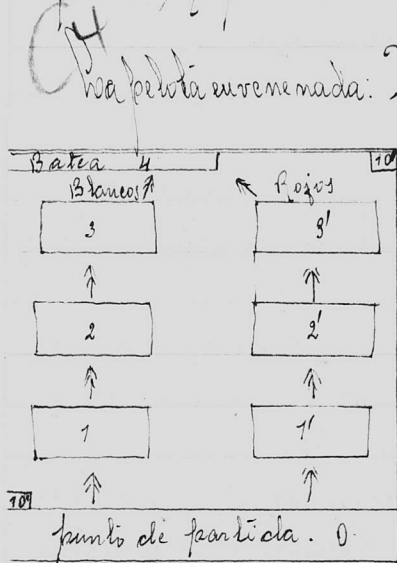 4
La pelota envenenada:
Batea 4
10
Blancos Rojos
3 3'
2 2'
1 1'
10
punto de partida. O.